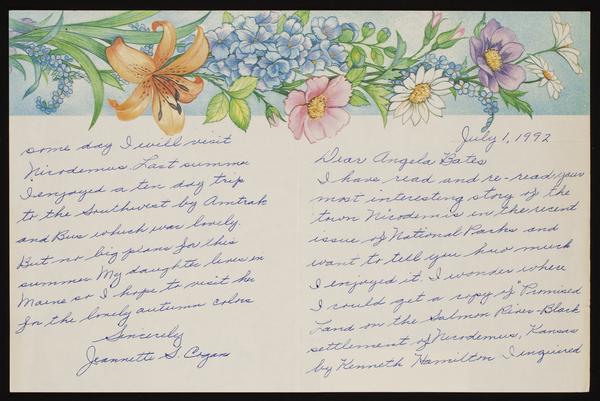 July 1, 1992
Dear Angela Bates
I have read and re-read your
most interesting story of the
town Nicodemis in the recent
issue of National Parks and
want to tell you how much
I enjoyed it. I wonder where
I could get a copy of "Promised
Land on the Salmon River-Black
settlement of Nicodemus, Kansas
by Kenneth Hamilton I inquired
some day I will visit
Nicodemus. Last summer
I enjoyed a ten day trip
to the Southwest by Amtrak
and Bus which was lovely.
But no big plans for this
summer. My daughter lives in
Maine so I hope to visit her
for the lovely autumn colors
Sincerely
Jeannette S. Cogan